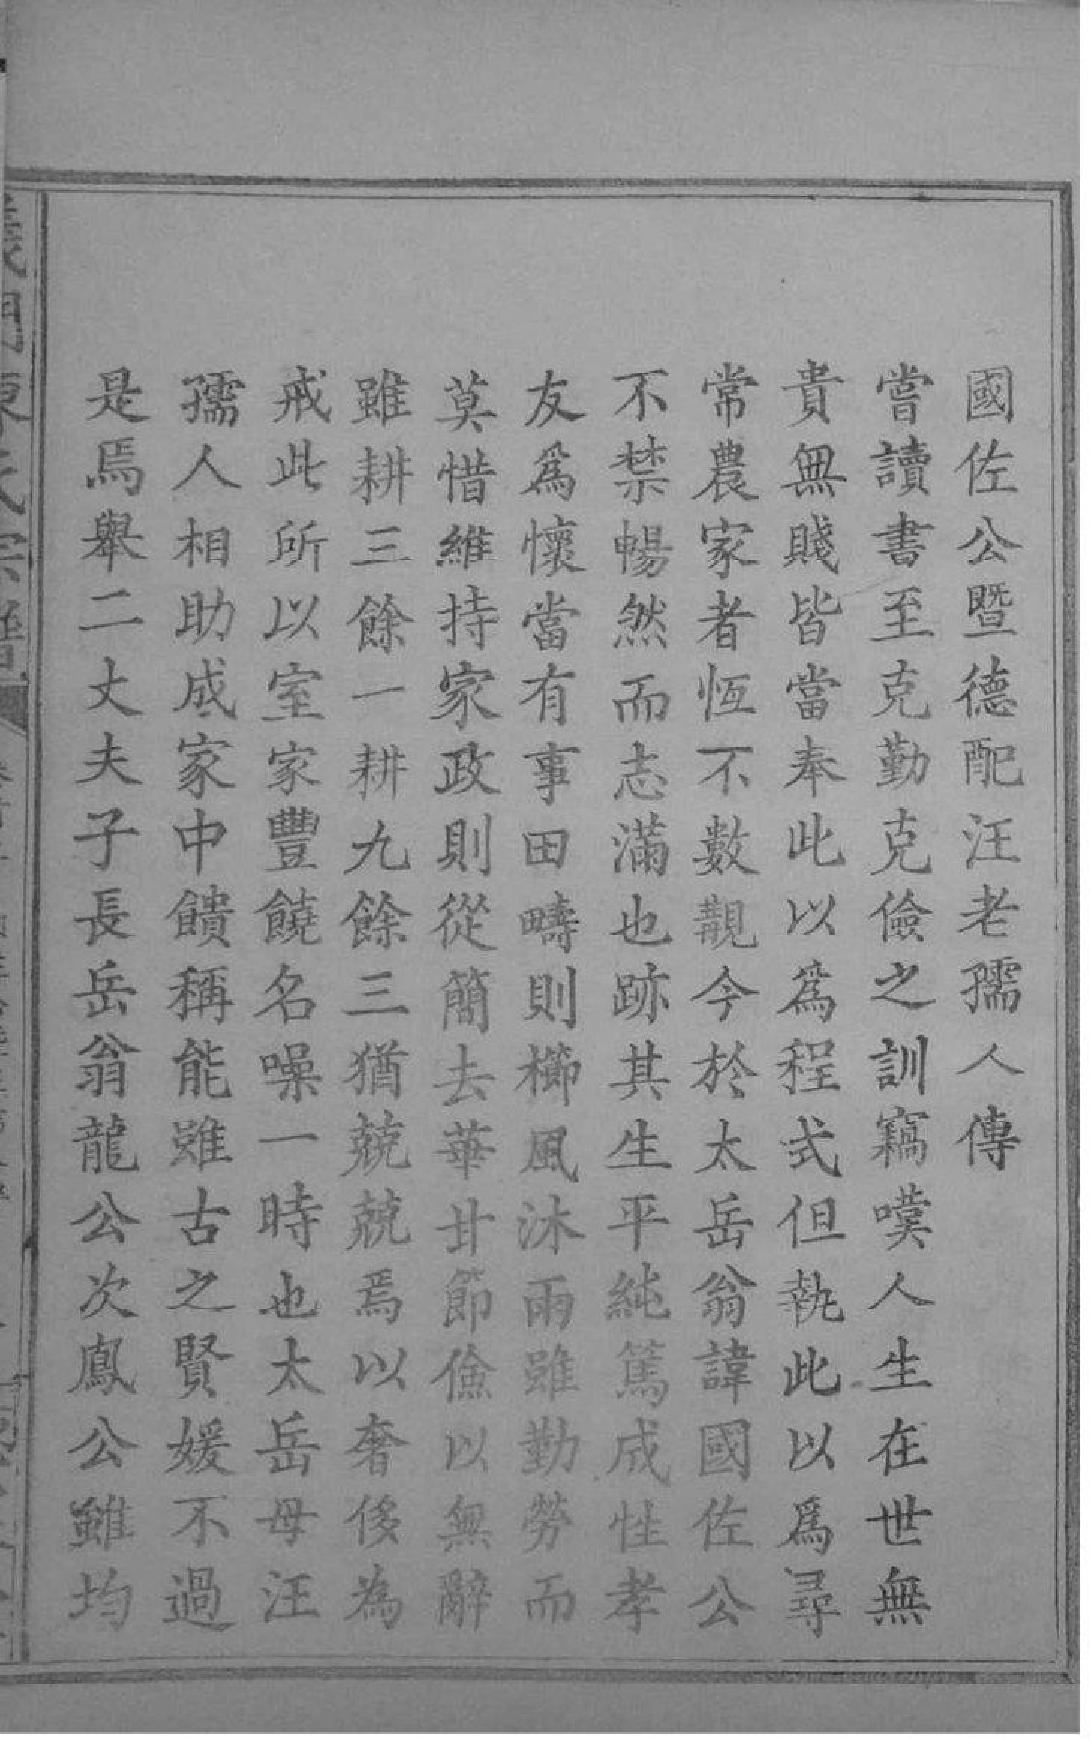 國佐公暨德配汪老孺人傳
嘗讀書至克勤克儉之訓竊嘆人生在世無
貴無賤皆當奉此以為程式但執此以為尋
常農家者恆不數覯今於太岳翁諱國佐公
不禁暢然而志滿也跡其生平純篤成性孝
友為懷當有事田疇則櫛風沐雨雖勤勞而
莫惜維持家政則從簡去華甘節儉以無辭
雖耕三餘一耕九餘三猶兢兢焉以奢侈為
戒此所以室家豐饒名噪一時也太岳母汪
孺人相助成家中饋稱能雖古之賢媛不過
是焉舉二丈夫子長岳翁龍公次鳳公雖均
義門陳氏宗譜